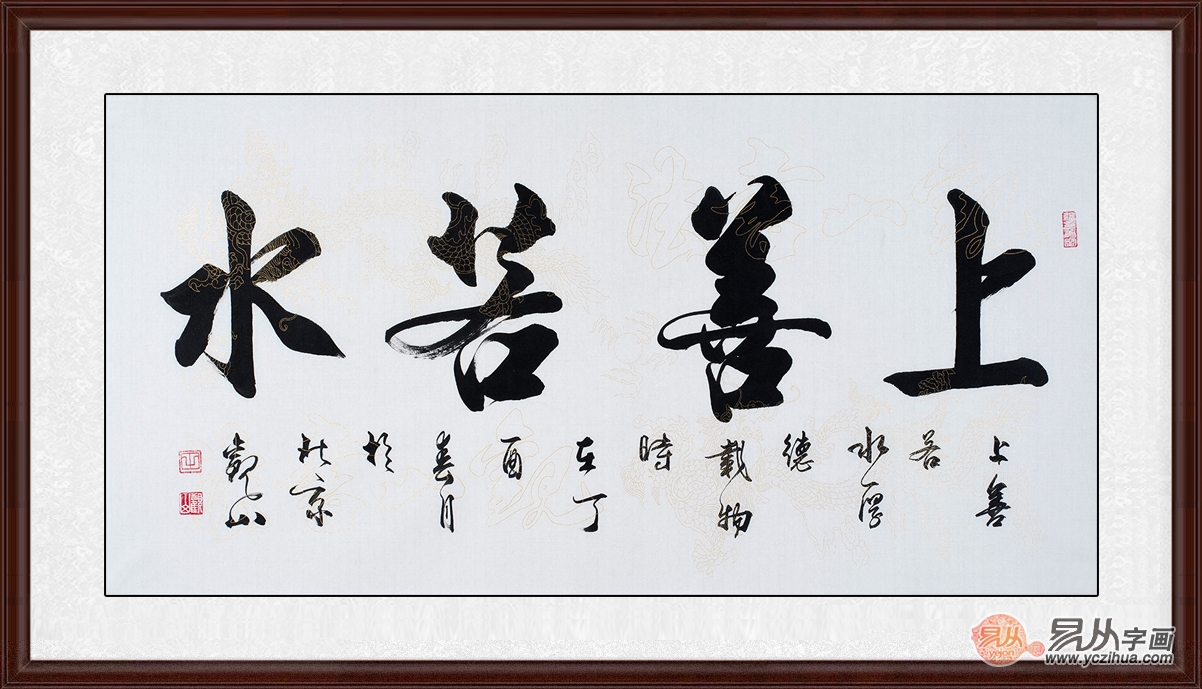 上善若水
上善
若
水厚
德
载物
時
在丁
酉
春月
於
北京
观山
易从
易从字画
www.yczihua.com